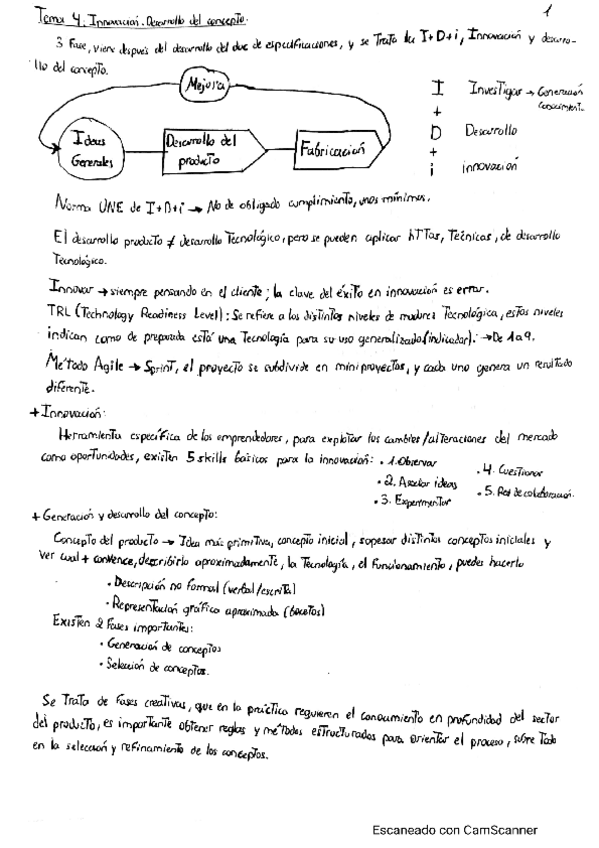 1
Tema 4: Innovación. Desarrollo del concepto.
3 Fase, viene después del desarrollo del doc de especificaciones, y se trata de I+D+i, Innovación y desarro-
llo del concepto.
Mejora
Ideas
Generales
Desarrollo del
producto
Fabricación
I Investigar → Generación
conocimient.
+
D Desarrollo
+
i innovación
Norma UNE de I+D+i → No de obligado cumplimiento, unos mínimos.
El desarrollo producto ≠ desarrollo Tecnológico, pero se pueden aplicar hTTas, Técnicas, de desarrollo
Tecnológico.
Innovar → siempre pensando en el cliente; la clave del éxito en innovación es errar.
TRL (Technology Readiness Level): Se refiere a los distintos niveles de madurez Tecnológica, estos niveles
indican como de preparada está una Tecnología para su uso generalizado (indicador). → De 1 a 9.
Método Agile → Sprint, el proyecto se subdivide en miniproyectos, y cada uno genera un resultado
diferente.
+ Innovación:
Herramienta específica de los emprendedores, para explotar los cambios/alteraciones del mercado
como oportunidades, existen 5 skills básicos para la innovación: • 1. Observar
• 2. Asociar ideas
• 3. Experimentar
• 4. Cuestionar
• 5. Red de colaboración.
+ Generación y desarrollo del concepto:
Concepto del producto → Idea más primitiva, concepto inicial, sopesar distintos conceptos iniciales y
ver cual + convence, describirlo aproximadamente, la Tecnología, el funcionamiento, puedes hacerlo
• Descripción no formal (verbal/escrita)
• Representación gráfica aproximada (bocetos)
Existen 2 fases importantes:
• Generación de conceptos
• Selección de conceptos.
Se trata de fases creativas, que en la práctica requieren el conocimiento en profundidad del sector
del producto, es importante obtener reglas y métodos estructurados para orientar el proceso, sobre todo
en la selección y refinamiento de los conceptos.
Escaneado con CamScanner